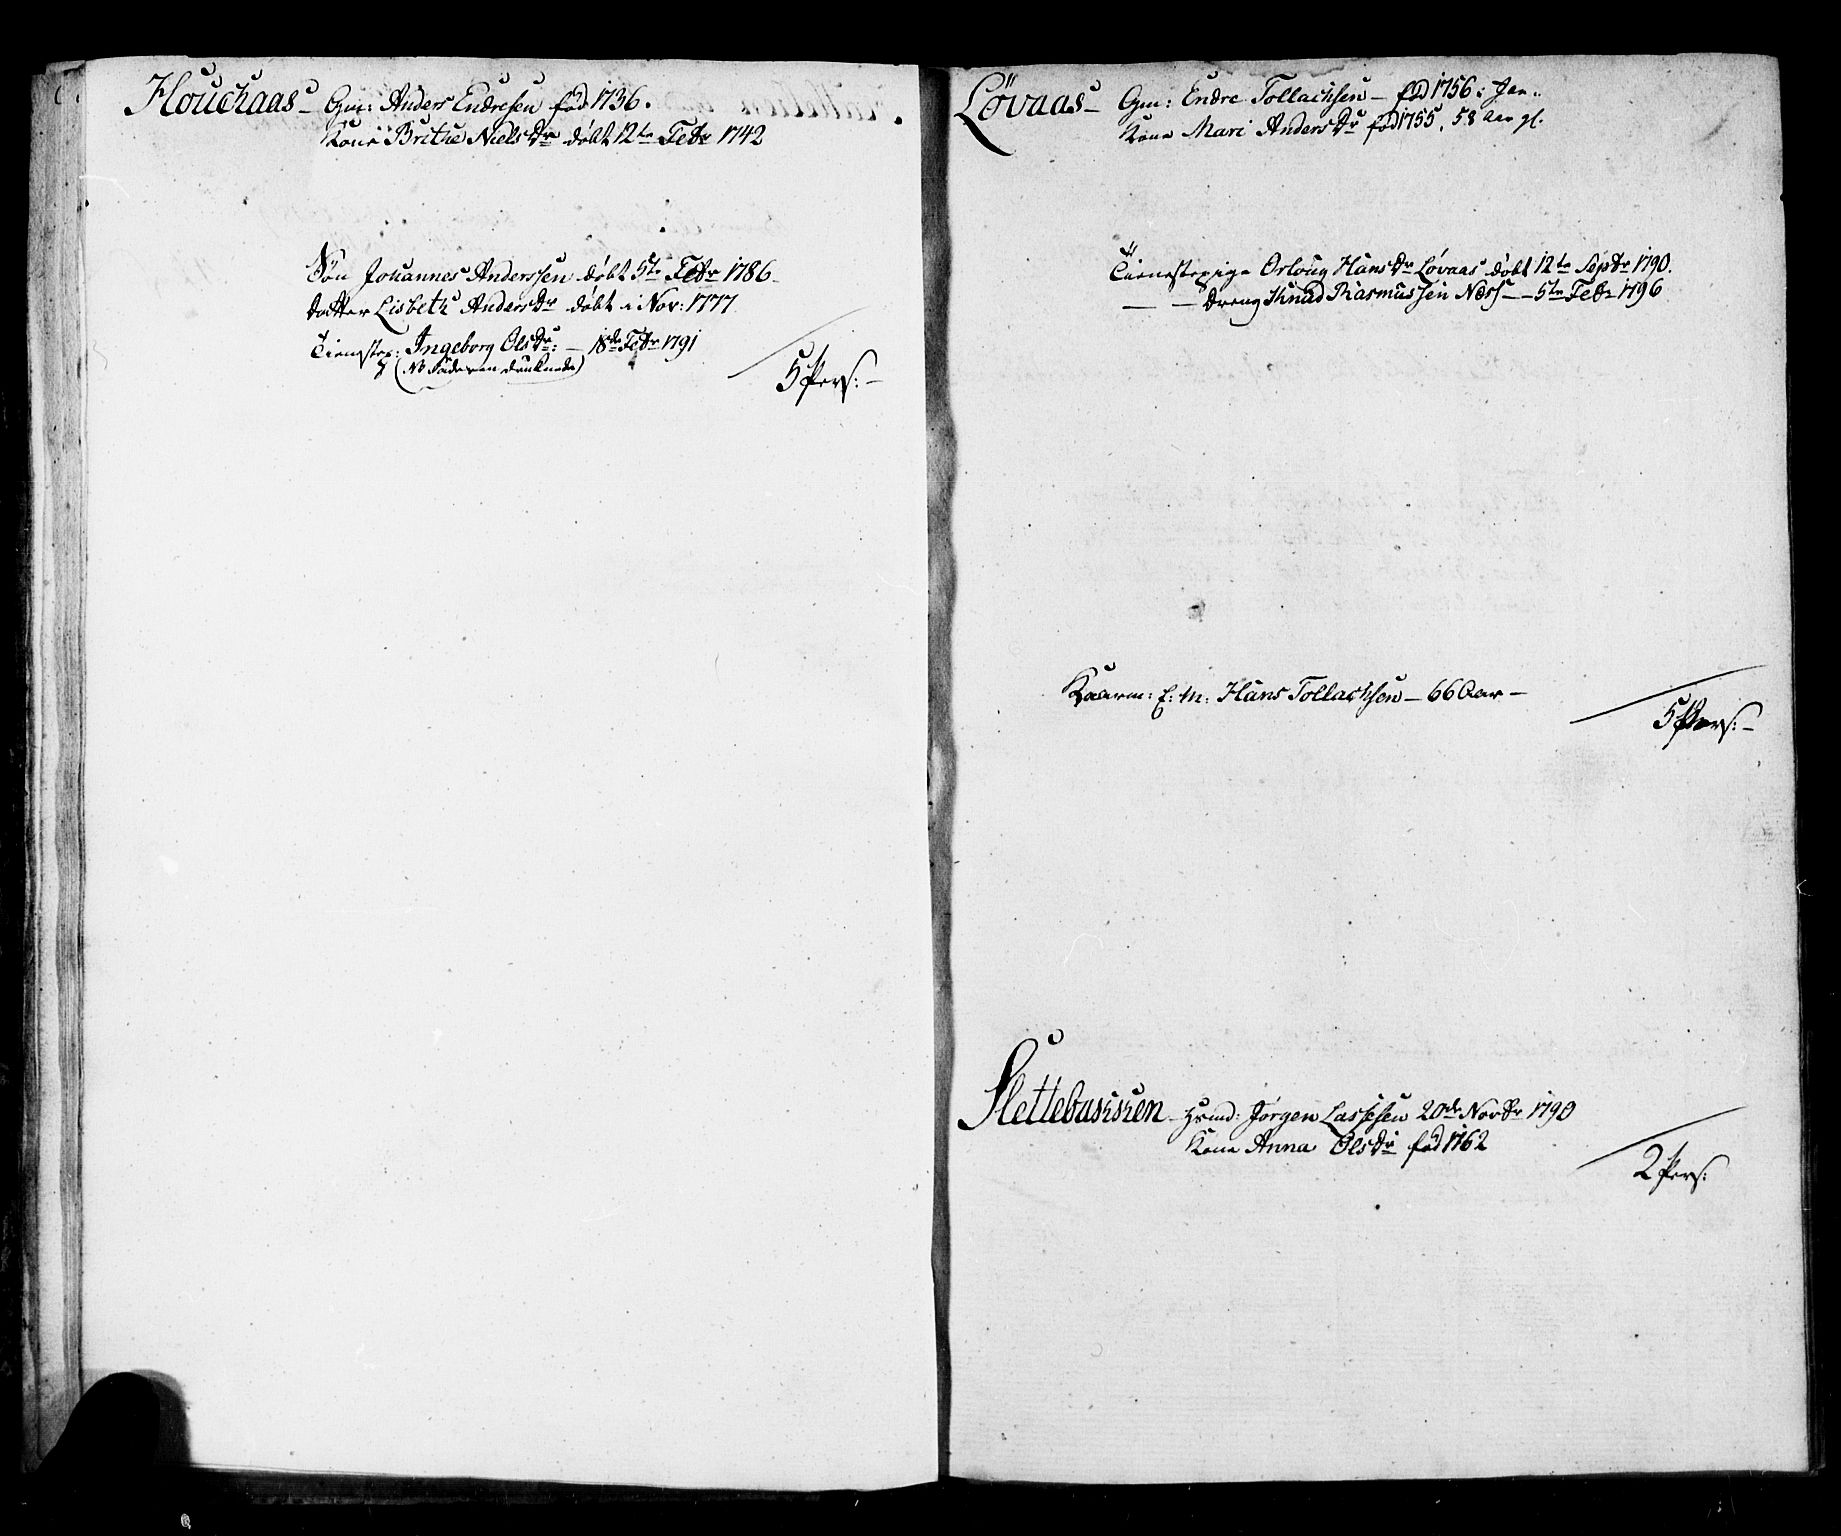 Houchaas – Gm: Anders Endresen fød 1736.
Kone Brithe Niels Dr døbt 12te Febr 1742
Søn Johannes Anderssen døbt 5te Febr 1786
datter Lisbeth Anders Dr døbt i Nov: 1777
Tienestep: Ingeborg Ols Dr: – 18de Febr 1791
(NB Faderen druknede)
5 Pers: –
Løvaas – Gm: Endre Tollachsen – fød 1756: Jan:
Kone Mari Anders Dr fød 1755, 58 Aar gl.
Tienestepige Orloug Hans Dr Løvaas døbt 12te Septr 1790.
— — dreng Knud Rasmussen Næss – – 5te Febr 1796
Kaarm: E: M: Hans Tollachsen – 66 Aar –
5 Pers: –
Slettebakken – Husmd: Jørgen Lassesen 20de Novbr 1790
Kone Anna Ols Dr fød 1762
2 Pers: